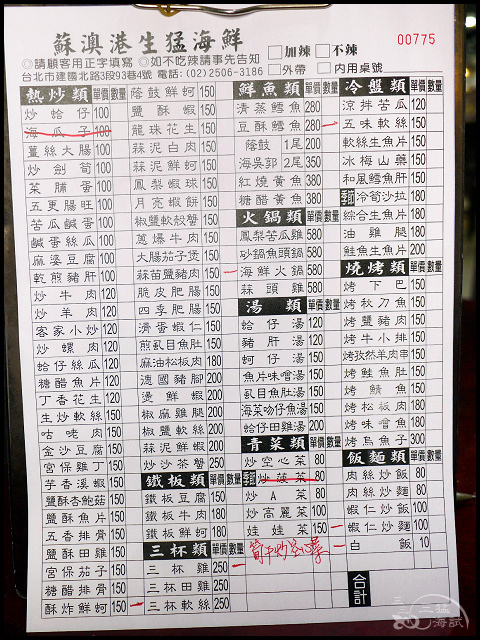 蘇澳港生猛海鮮
□加辣 □不辣
00775
◎請顧客用正字填寫 ◎如不吃辣請事先告知
台北市建國北路3段93巷4號 電話:(02)2506-3186
□外帶 □內用桌號
熱炒類 單價 數量
炒蛤仔 100
海瓜子 100
薑絲大腸 100
炒劍筍 100
菜脯蛋 100
五更腸旺 100
苦瓜鹹蛋 100
鹹蛋絲瓜 100
麻婆豆腐 100
乾煎豬肝 100
炒牛肉 120
炒羊肉 120
客家小炒 120
炒螺肉 120
蛤仔絲瓜 120
糖醋魚片 120
丁香花生 120
生炒軟絲 150
咕咾肉 150
金沙豆腐 150
宮保雞丁 150
芋香溪蝦 150
鹽酥杏鮑菇 150
鹽酥魚片 150
五香排骨 150
鹽酥田雞 150
宮保茄子 150
糖醋排骨 150
酥炸鮮蚵 150
蔭鼓鮮蚵 150
鹽酥蝦 150
龍珠花生 150
蒜泥白肉 150
蒜泥鮮蚵 150
鳳梨蝦球 150
月亮蝦餅 150
椒鹽軟殼蟹 150
蔥爆牛肉 150
大腸茄子煲 150
蒜苗鹽豬肉 150
脆皮肥腸 150
四季肥腸 150
滑蛋蝦仁 150
煎虱目魚肚 150
麻油松板肉 180
德國豬腳 200
燙鮮蝦 200
椒麻雞腿 200
椒鹽軟絲 200
蒜泥鮮蝦 200
炒沙茶蟹 250
鐵板類 單價 數量
鐵板豆腐 150
鐵板牛肉 180
鐵板鮮蚵 180
三杯類 單價 數量
三杯雞 250
三杯田雞 250
三杯軟絲 250
鮮魚類 單價 數量
清蒸鱈魚 280
豆酥鱈魚 280
蔭鼓1尾 200
海吳郭2尾 350
紅燒黃魚 380
糖醋黃魚 380
火鍋類 單價 數量
鳳梨苦瓜雞 580
砂鍋魚頭鍋 580
海鮮火鍋 580
蒜頭雞 580
湯類 單價 數量
蛤仔湯 120
豬肝湯 120
蚵仔湯 120
魚片味噌湯 150
虱目魚肚湯 150
海菜吻仔魚湯 150
蛤仔田雞湯 200
青菜類 單價 數量
炒空心菜 80
季節 炒菠菜 80
炒A菜 80
炒高麗菜 100
娃娃菜 150
冷盤類 單價 數量
涼拌苦瓜 120
五味軟絲 150
軟絲生魚片 150
冰梅山藥 150
和風鱈魚肝 150
季節 冷筍沙拉 180
綜合生魚片 180
油雞腿 180
鮭魚生魚片 200
燒烤類 單價 數量
烤下巴 150
烤秋刀魚 150
烤鹽豬肉 150
烤牛小排 150
烤孜然羊肉串 150
烤鮭魚肚 150
烤鯖魚 150
烤松板肉 180
烤味噌魚 180
烤烏魚子 300
飯麵類 單價 數量
肉絲炒飯 80
肉絲炒麵 80
蝦仁炒飯 100
蝦仁炒麵 100
白飯 10
合計